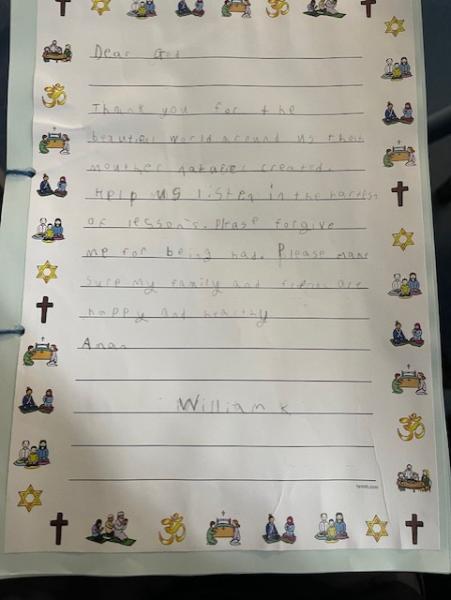 Dear God
Thank you for the
beautiful world around us that
mouther natures created.
Help us listen in the
of lesson's. Please forgive
me for being bad. Please make
sure my family and are
happy and healthy
Aman
William K
twinkl.com